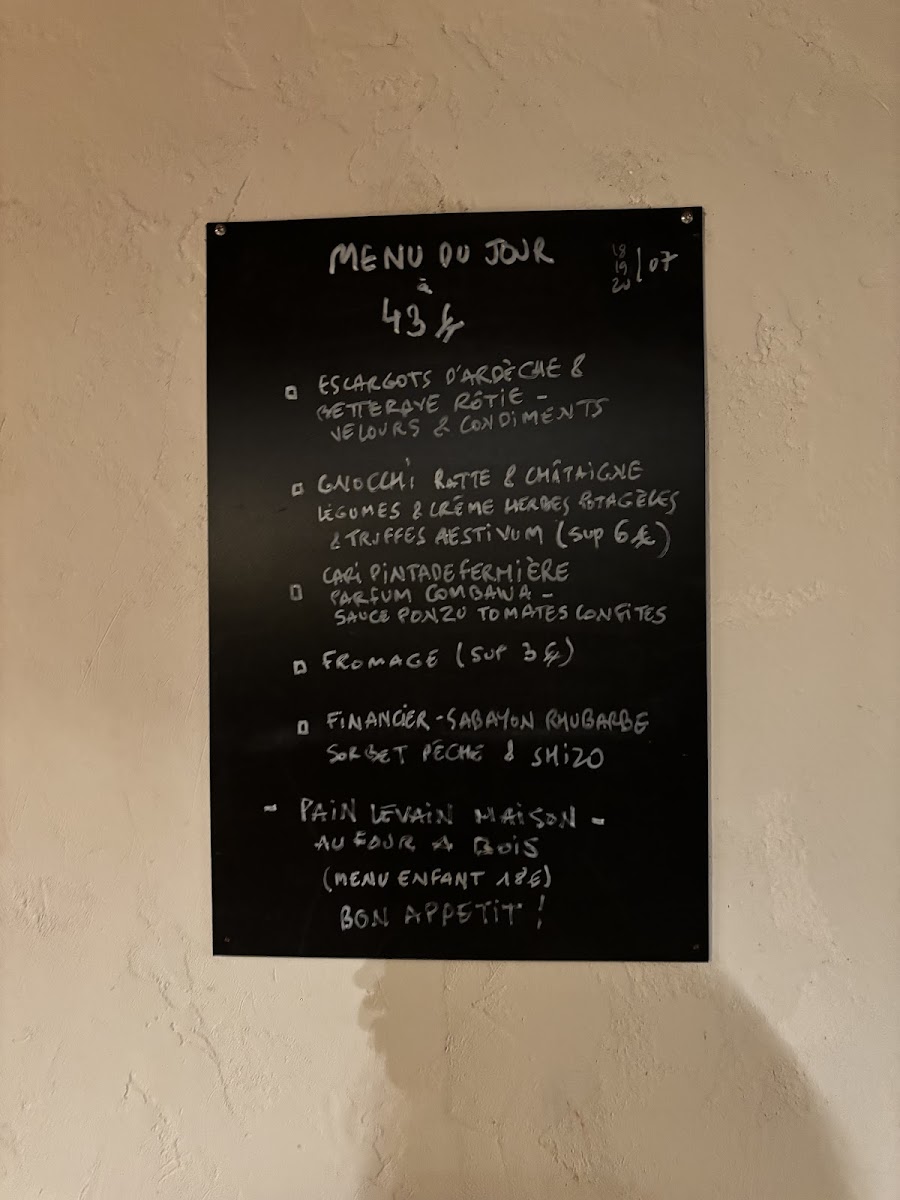 MENU DU JOUR
18
19 /07
20
à
43 €
ESCARGOTS D'ARDÈCHE &
BETTERAVE RÔTIE -
VELOURS & CONDIMENTS
GNOCCHi RATTE & CHÂTAiGNE
LÉGUMES & CRÈME HERBES POTAGÈRES
& TRUFFES AESTIVUM (SUP 6 €)
CARi PINTADE FERMIÈRE
PARFUM COMBAWA -
SAUCE PONZU TOMATES CONFITES
FROMAGE (SUP 3 €)
FINANCIER - SABAYON RHUBARBE
SORBET PÊCHE & SHiZO
- PAiN LEVAIN MAiSON -
AU FOUR A BOiS
(MENU ENFANT 18€)
BON APPETIT !